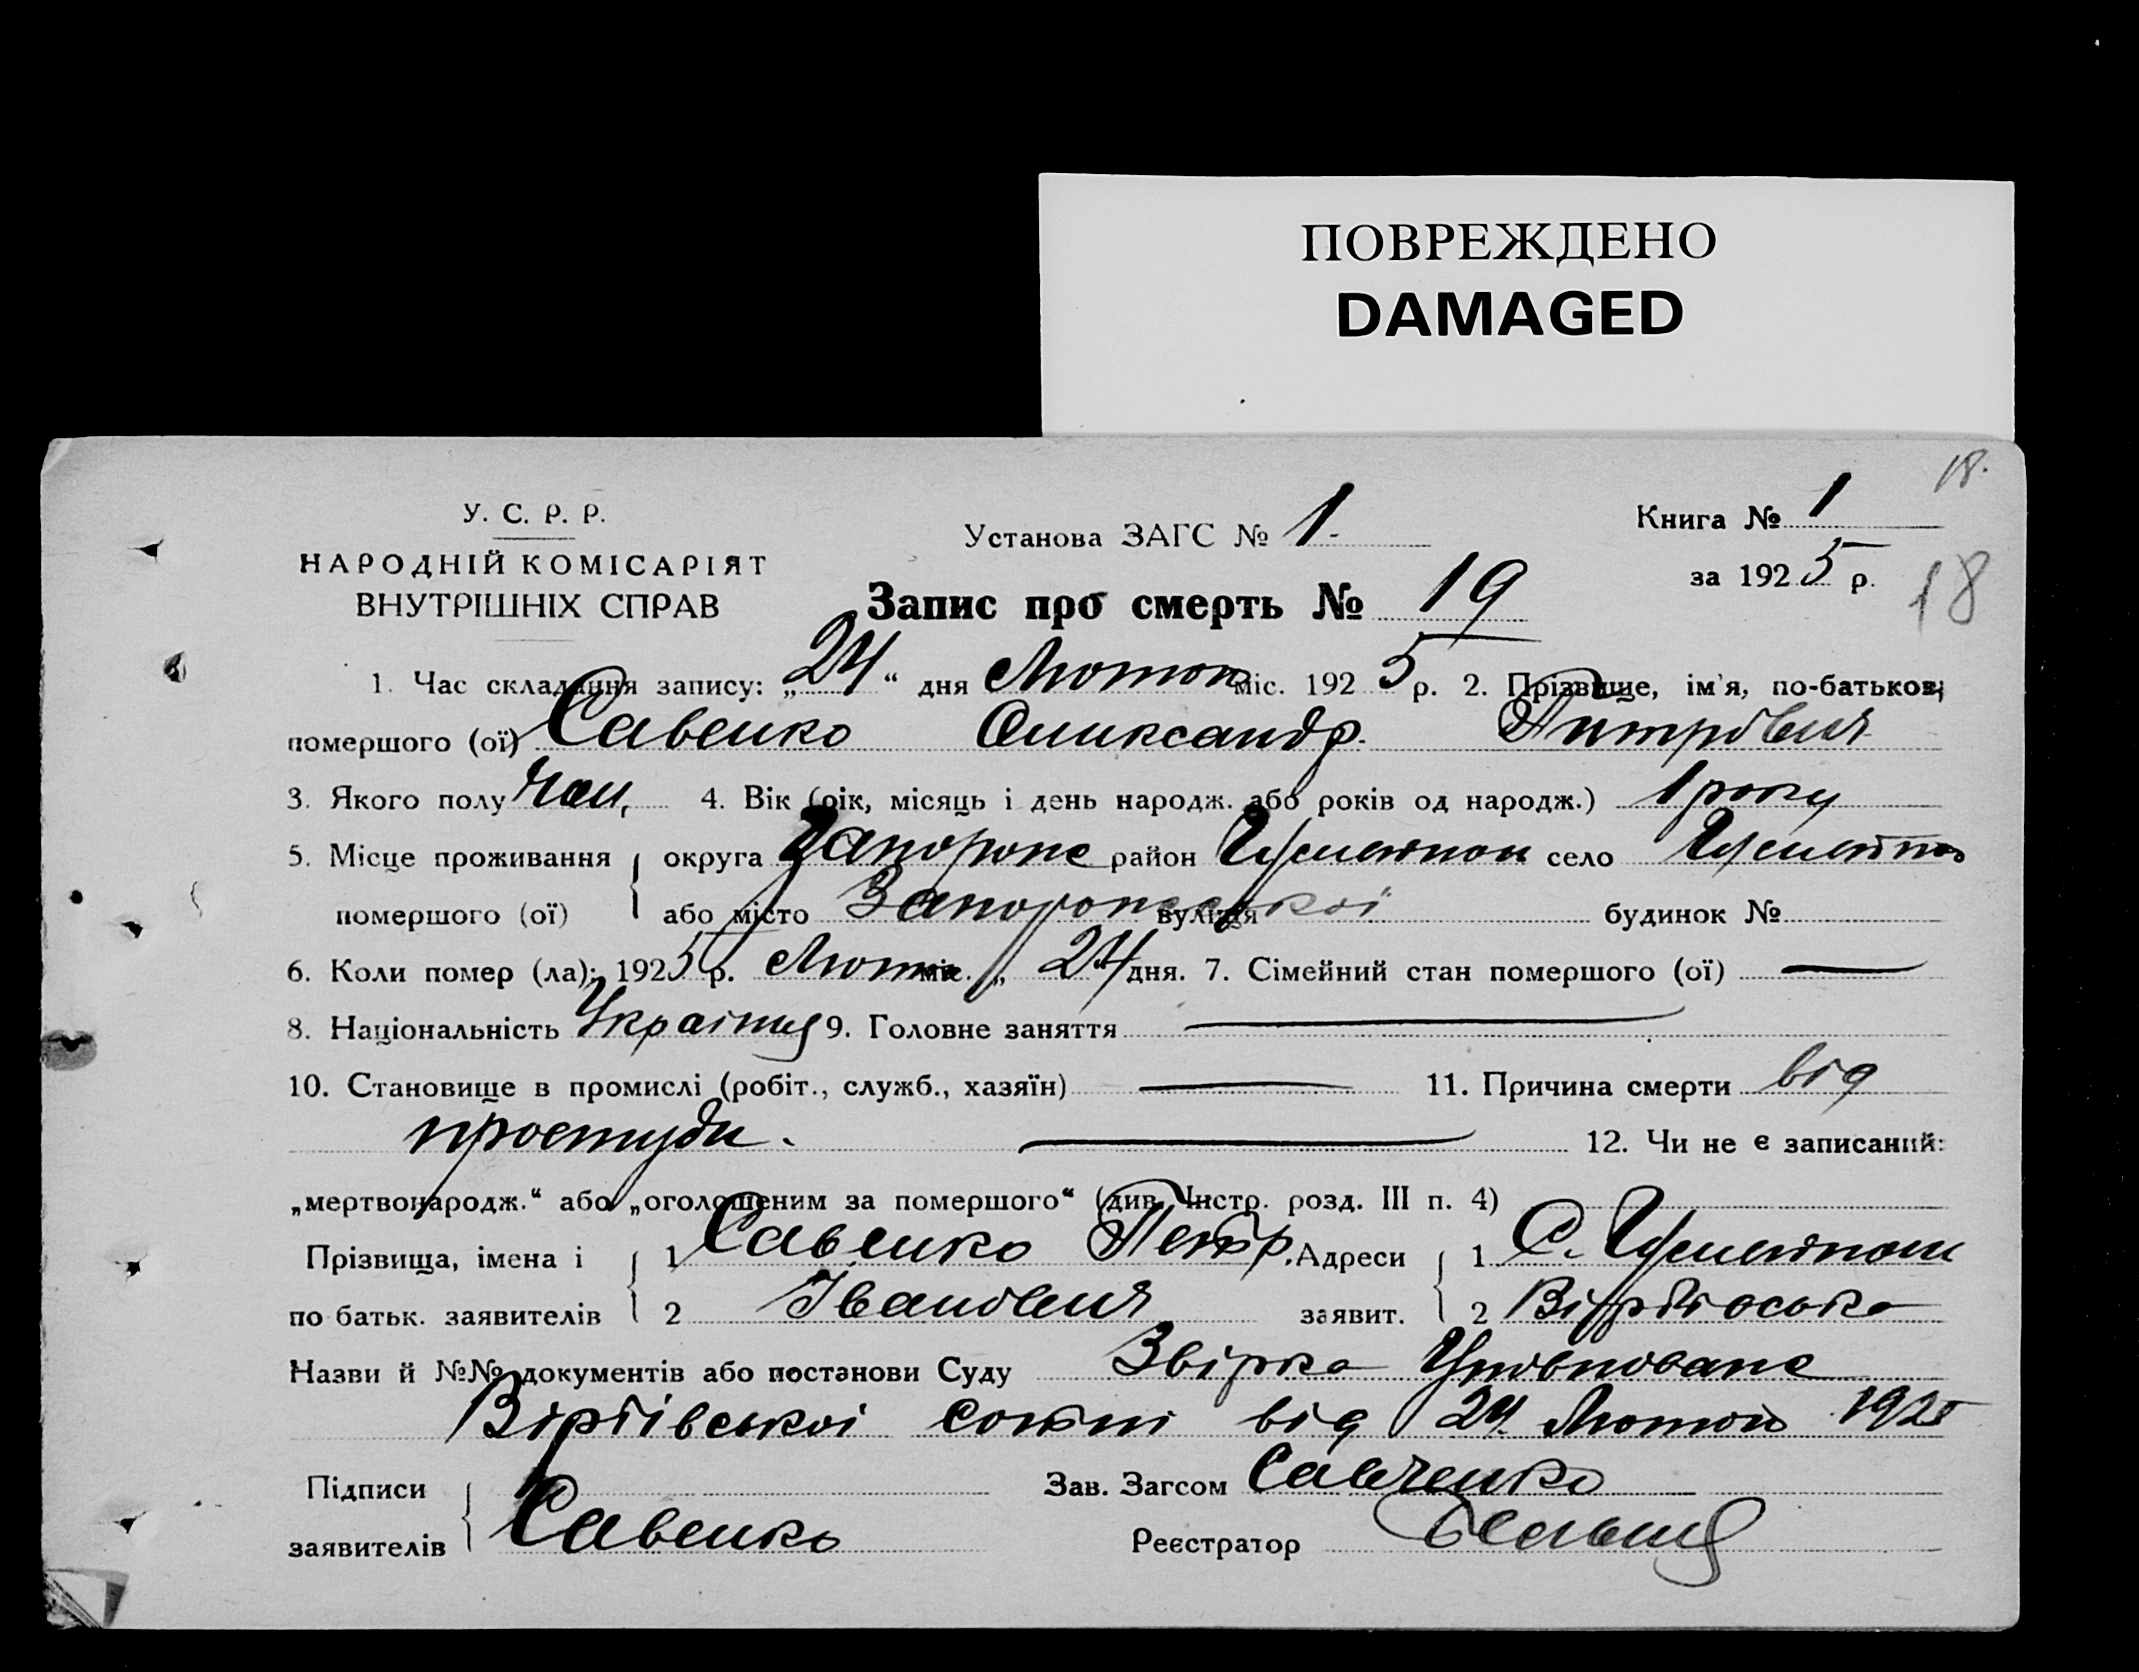 ПОВРЕЖДЕНО
DAMAGED
18.
У. С. Р. Р.
НАРОДНІЙ КОМІСАРІЯТ
ВНУТРІШНІХ СПРАВ
Установа ЗАГС № 1
Книга № 1
за 1925 р.
18
Запис про смерть № 19
1. Час складання запису: „24“ дня Лютого міс. 1925 р. 2. Прізвище, ім'я, по-батькові
помершого (ої) Савенко Олександр
3. Якого полу Чол. 4. Вік (рік, місяць і день народж. або років од народж.) 1 року
5. Місце проживання округа район село
помершого (ої) або місто Запорожської вулиця будинок №
6. Коли помер (ла): 1925 р. міс. „24“ дня. 7. Сімейний стан помершого (ої) —
8. Національність 9. Головне заняття —
10. Становище в промислі (робіт., служб., хазяїн) — 11. Причина смерти від
простуди. — 12. Чи не є записаний:
„мертвонародж.“ або „оголошеним за помершого“ (див. Інстр. розд. III п. 4)
Прізвища, імена і 1 Савенко Петр. Адреси 1 С.
по батьк. заявителів 2 Іванович заявит. 2
Назви й №№ документів або постанови Суду
від 24 1925
Підписи Зав. Загсом Савченко
заявителів Савенко Реєстратор